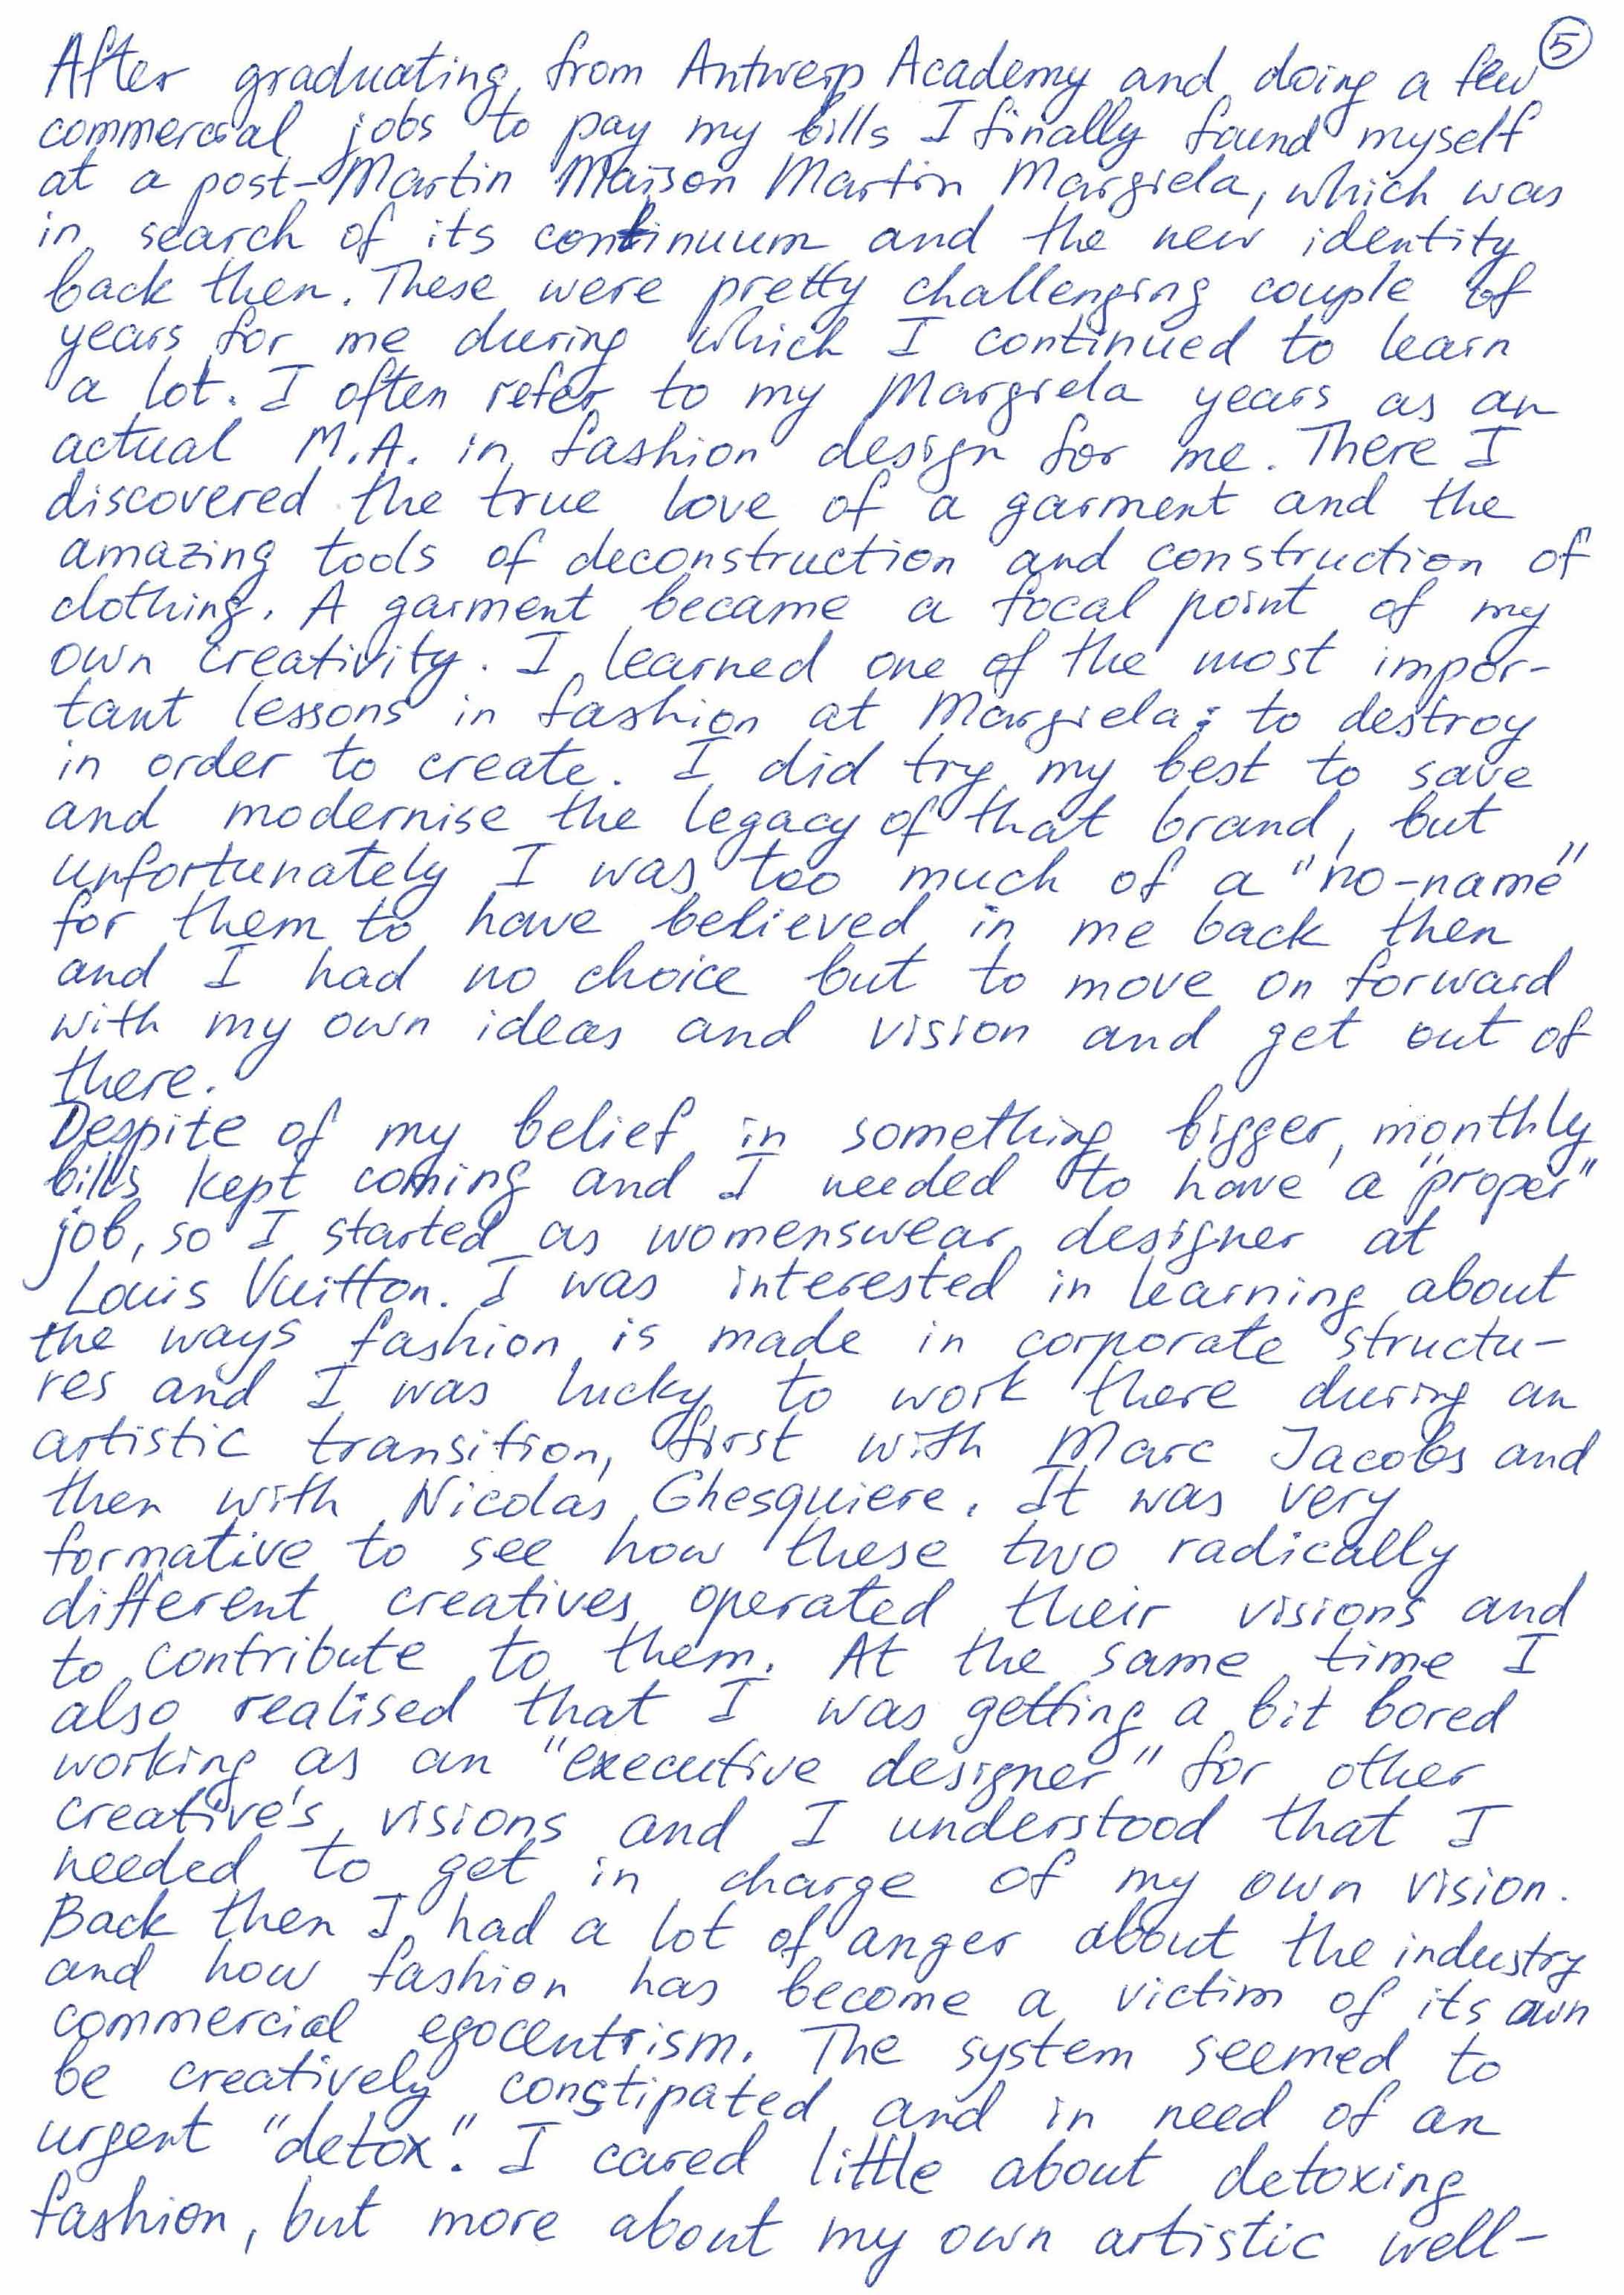 5
After graduating from Antwerp Academy and doing a few
commercial jobs to pay my bills I finally found myself
at a post-Martin Maison Martin Margiela, which was
in search of its continuum and the new identity
back then. These were pretty challenging couple of
years for me during which I continued to learn
a lot. I often refer to my Margiela years as an
actual M.A. in fashion design for me. There I
discovered the true love of a garment and the
amazing tools of deconstruction and construction of
clothing. A garment became a focal point of my
own creativity. I learned one of the most impor-
tant lessons in fashion at Margiela: to destroy
in order to create. I did try my best to save
and modernise the legacy of that brand, but
unfortunately I was too much of a "no-name"
for them to have believed in me back then
and I had no choice but to move on forward
with my own ideas and vision and get out of
there.
Despite of my belief in something bigger, monthly
bills kept coming and I needed to have a "proper"
job, so I started as womenswear designer at
Louis Vuitton. I was interested in learning about
the ways fashion is made in corporate structu-
res and I was lucky to work there during an
artistic transition, first with Marc Jacobs and
then with Nicolas Ghesquiere. It was very
formative to see how these two radically
different creatives operated their visions and
to contribute to them. At the same time I
also realised that I was getting a bit bored
working as an "executive designer" for other
creative's visions and I understood that I
needed to get in charge of my own vision.
Back then I had a lot of anger about the industry
and how fashion has become a victim of its own
commercial egocentrism. The system seemed to
be creatively constipated and in need of an
urgent "detox". I cared little about detoxing
fashion, but more about my own artistic well-